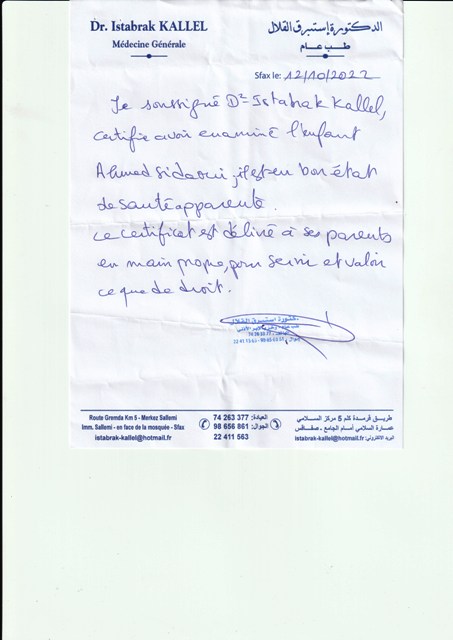 Dr. Istabrak KALLEL
Médecine Générale
الدكتورة إستبرق القلال
طب عام
Sfax le: 12/10/2022
Je soussigné Dr Istabrak Kallel,
certifie avoir examiné l'enfant
Ahmed Sidaoui, il est en bon état
de santé apparente.
ce certificat est délivré à ses parents
en main propre, pour servir et valoir
ce que de droit.
الدكتورة إستبرق القلال
Route Gremda Km 5 - Merkez Sallemi
Imm. Sallemi - en face de la mosquée - Sfax
istabrak-kallel@hotmail.fr
العيادة: 74 263 377
الجوال: 98 656 861
22 411 563
طريق قرمدة كلم 5 مركز السلامي
عمارة السلامي أمام الجامع - صفاقس
البريد الالكتروني: istabrak-kallel@hotmail.fr